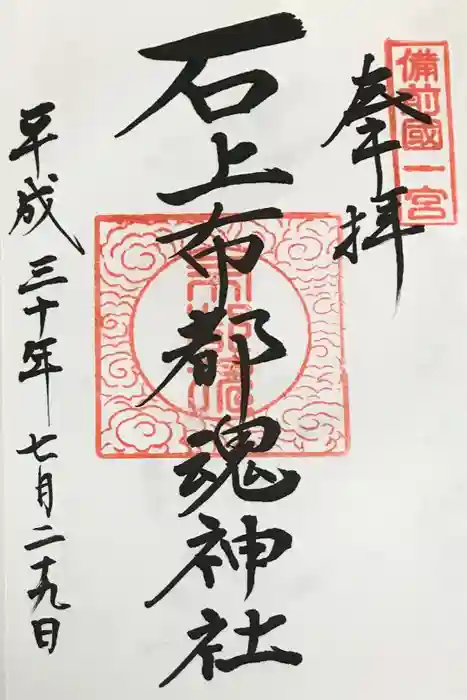 備前國一宮
奉拝
石上布都魂神社
平成三十年七月二十九日